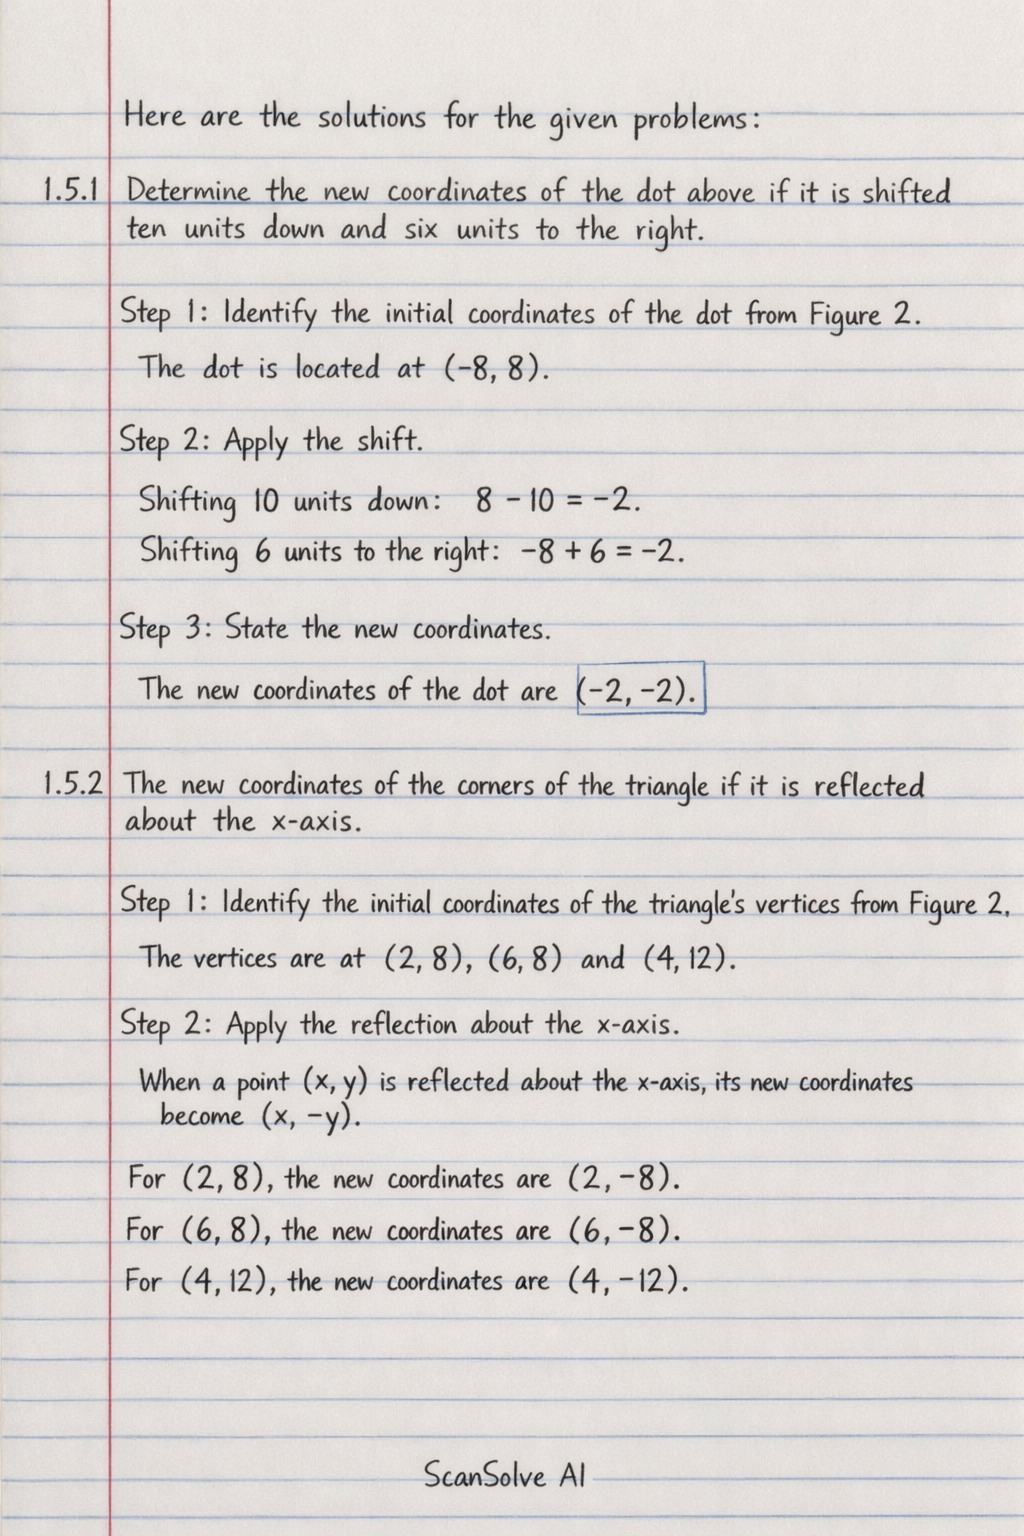 Here are the solutions for the given problems:
1.5.1 Determine the new coordinates of the dot above if it is shifted
ten units down and six units to the right.
Step 1: Identify the initial coordinates of the dot from Figure 2.
The dot is located at (-8, 8).
Step 2: Apply the shift.
Shifting 10 units down: 8 - 10 = -2.
Shifting 6 units to the right: -8 + 6 = -2.
Step 3: State the new coordinates.
The new coordinates of the dot are (-2, -2).
1.5.2 The new coordinates of the corners of the triangle if it is reflected
about the x-axis.
Step 1: Identify the initial coordinates of the triangle's vertices from Figure 2.
The vertices are at (2, 8), (6, 8) and (4, 12).
Step 2: Apply the reflection about the x-axis.
When a point (x, y) is reflected about the x-axis, its new coordinates
become (x, -y).
For (2, 8), the new coordinates are (2, -8).
For (6, 8), the new coordinates are (6, -8).
For (4, 12), the new coordinates are (4, -12).
ScanSolve AI